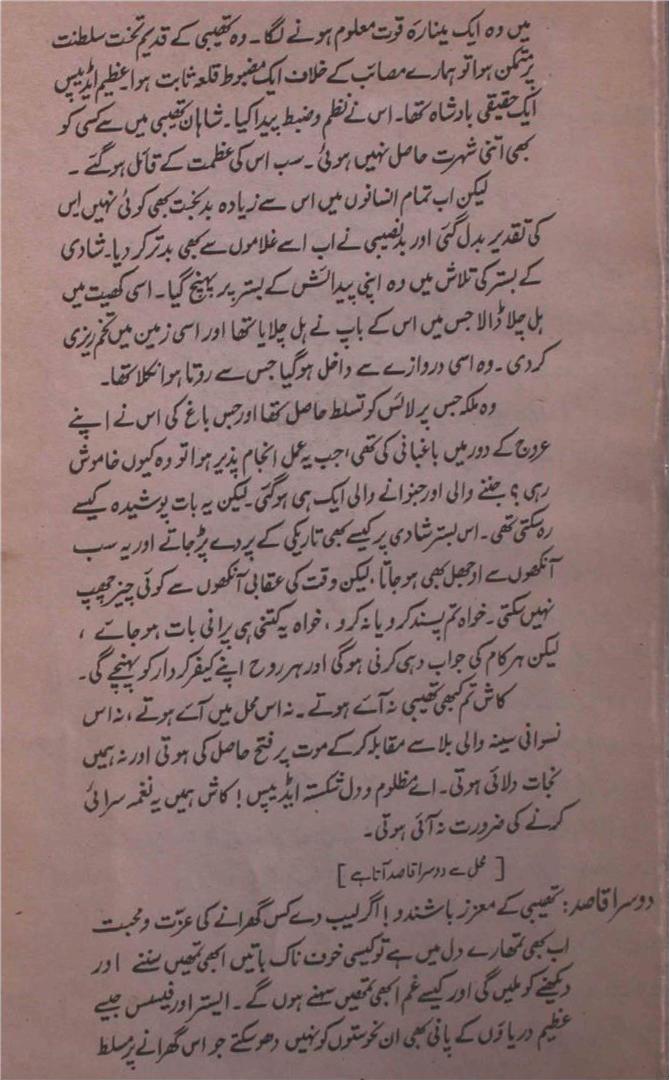 میں وہ ایک مینارۂ قوت معلوم ہونے لگا۔ وہ تھیبی کے قدیم تخت سلطنت
پر متمکن ہوا تو ہمارے مصائب کے خلاف ایک مضبوط قلعہ ثابت ہوا۔ عظیم ایڈیپس
ایک حقیقی بادشاہ تھا۔ اس نے نظم و ضبط پیدا کیا۔ شاہان تھیبی میں سے کسی کو
بھی اتنی شہرت حاصل نہیں ہوئی۔ سب اس کی عظمت کے قائل ہو گئے۔
لیکن اب تمام انسانوں میں اس سے زیادہ بدبخت بھی کوئی نہیں اس
کی تقدیر بدل گئی اور بدنصیبی نے اب اسے غلاموں سے بھی بدتر کر دیا۔ شادی
کے بستر کی تلاش میں وہ اپنی پیدائش کے بستر پر پہنچ گیا۔ اسی کھیت میں
ہل چلا ڈالا جس میں اس کے باپ نے ہل چلایا تھا اور اسی زمین میں تخم ریزی
کر دی۔ وہ اسی دروازے سے داخل ہو گیا جس سے روتا ہوا نکلا تھا۔
وہ ملکہ جس پر لائس کو تسلط حاصل تھا اور جس باغ کی اس نے اپنے
عروج کے دور میں باغبانی کی تھی، جب یہ عمل انجام پذیر ہوا تو وہ کیوں خاموش
رہی؟ جننے والی اور جنوانے والی ایک ہی ہو گئی۔ لیکن یہ بات پوشیدہ کیسے
رہ سکتی تھی۔ اس بستر شادی پر کیسے بھی تاریکی کے پردے پڑ جاتے اور یہ سب
آنکھوں سے اوجھل بھی ہو جاتا، لیکن وقت کی عقابی آنکھوں سے کوئی چیز چھپ
نہیں سکتی۔ خواہ تم پسند کرو یا نہ کرو، خواہ یہ کتنی ہی پرانی بات ہو جائے،
لیکن ہر کام کی جواب دہی کرنی ہوگی اور ہر روح اپنے کیفر کردار کو پہنچے گی۔
کاش تم کبھی تھیبی نہ آئے ہوتے۔ نہ اس محل میں آئے ہوتے، نہ اس
نسوانی سینہ والی بلا سے مقابلہ کر کے موت پر فتح حاصل کی ہوتی اور نہ ہمیں
نجات دلائی ہوتی۔ اے مظلوم و دل شکستہ ایڈیپس! کاش ہمیں یہ نغمہ سرائی
کرنے کی ضرورت نہ آئی ہوتی۔
[محل سے دوسرا قاصد آتا ہے]
دوسرا قاصد: تھیبی کے معزز باشندو! اگر لیب دے کس گھرانے کی عزت و محبت
اب بھی تمہارے دل میں ہے تو کیسی خوف ناک باتیں ابھی تمھیں سننے اور
دیکھنے کو ملیں گی اور کیسے غم ابھی تمھیں سہنے ہوں گے۔ ایستر اور فیسس جیسے
عظیم دریاؤں کے پانی بھی ان نحوستوں کو نہیں دھو سکتے جو اس گھرانے پر مسلط